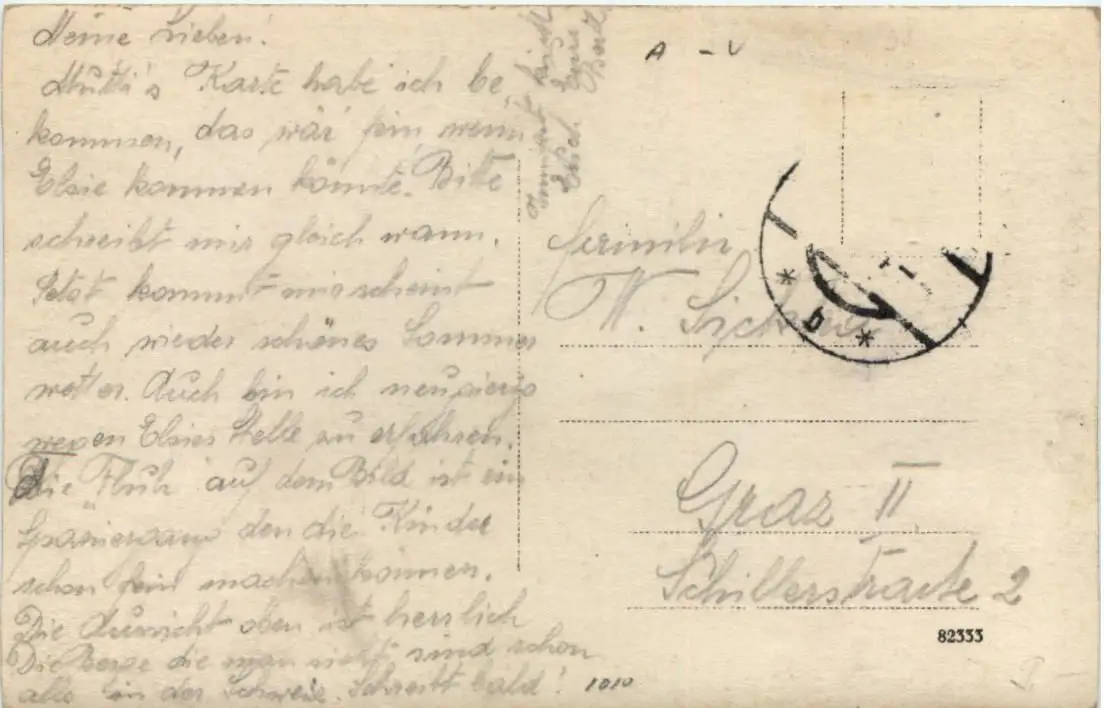 Meine Lieben!
Mutti's Karte habe ich be
kommen, das wär fein, wenn
Elsie kommen könnte. Bitte
schreibt mir gleich wann.
Jetzt kommt mir scheint
auch wieder schönes Sommer
wetter. Auch bin ich neugierig
wegen Elsies Stelle zu erfahren.
Die Fluh auf dem Bild ist ein
Spaziergang den die Kinder
schon fein machen können.
Die Aussicht oben ist herrlich
Die Berge die man sieht sind schon
alle in der Schweiz. Schreibt bald!
1010
Euch Eure
A - V
b
W.
Graz II
Schillerstraße 2
82333